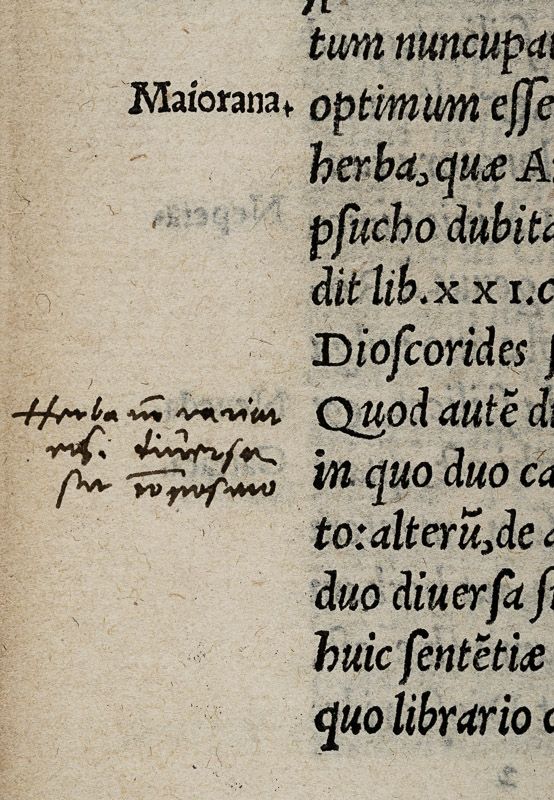 tum nuncupa
Maiorana.
optimum eſſe
herba, quæ A
pſucho dubit
dit lib. x x i. c
Dioſcorides ſ
Quod autē d
in quo duo ca
to: alterū, de a
duo diuerſa ſi
huic ſentētiæ
quo librario c
Herba
diuersa